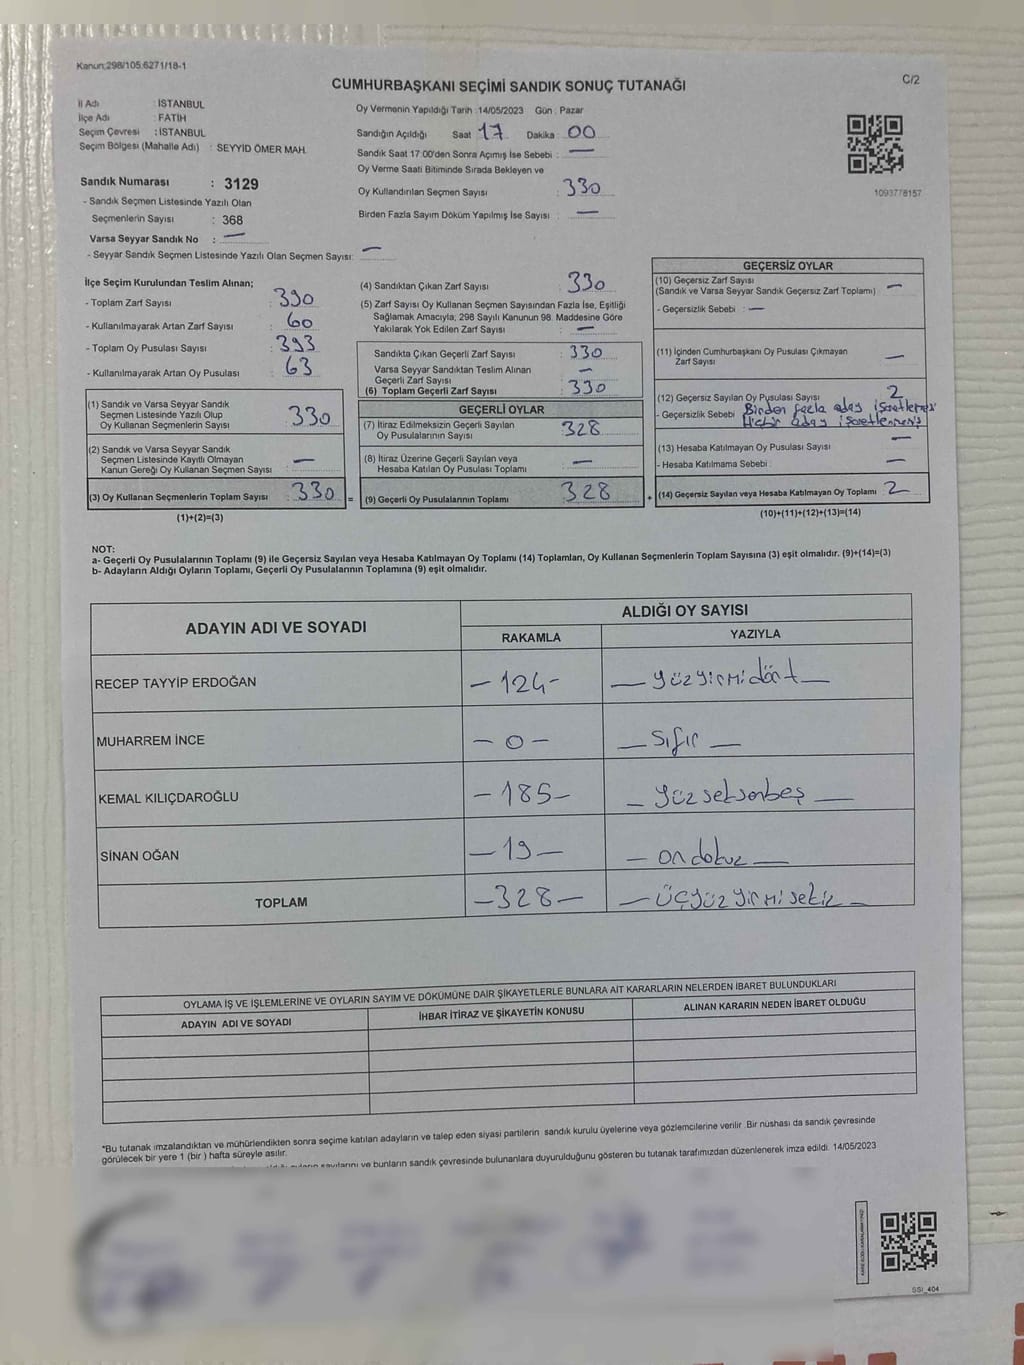 Kanun:298/105,6271/18-1
C/2
CUMHURBAŞKANI SEÇİMİ SANDIK SONUÇ TUTANAĞI
İl Adı : İSTANBUL
İlçe Adı : FATİH
Seçim Çevresi : İSTANBUL
Seçim Bölgesi (Mahalle Adı) : SEYYİD ÖMER MAH.
Sandık Numarası : 3129
- Sandık Seçmen Listesinde Yazılı Olan
Seçmenlerin Sayısı : 368
Varsa Seyyar Sandık No : —
- Seyyar Sandık Seçmen Listesinde Yazılı Olan Seçmen Sayısı: —
Oy Vermenin Yapıldığı Tarih :14/05/2023 Gün : Pazar
Sandığın Açıldığı Saat 17 Dakika : 00
Sandık Saat 17:00'den Sonra Açımış İse Sebebi : —
Oy Verme Saati Bitiminde Sırada Bekleyen ve
Oy Kullandırılan Seçmen Sayısı : 330
Birden Fazla Sayım Döküm Yapılmış İse Sayısı : —
1093778157
İlçe Seçim Kurulundan Teslim Alınan;
- Toplam Zarf Sayısı : 390
- Kullanılmayarak Artan Zarf Sayısı : 60
- Toplam Oy Pusulası Sayısı : 393
- Kullanılmayarak Artan Oy Pusulası : 63
(1) Sandık ve Varsa Seyyar Sandık
Seçmen Listesinde Yazılı Olup
Oy Kullanan Seçmenlerin Sayısı : 330
(2) Sandık ve Varsa Seyyar Sandık
Seçmen Listesinde Kayıtlı Olmayan
Kanun Gereği Oy Kullanan Seçmen Sayısı : —
(3) Oy Kullanan Seçmenlerin Toplam Sayısı : 330 =
(1)+(2)=(3)
(4) Sandıktan Çıkan Zarf Sayısı : 330
(5) Zarf Sayısı Oy Kullanan Seçmen Sayısından Fazla İse, Eşitliği
Sağlamak Amacıyla; 298 Sayılı Kanunun 98. Maddesine Göre
Yakılarak Yok Edilen Zarf Sayısı : —
Sandıkta Çıkan Geçerli Zarf Sayısı : 330
Varsa Seyyar Sandıktan Teslim Alınan
Geçerli Zarf Sayısı : —
(6) Toplam Geçerli Zarf Sayısı : 330
GEÇERLİ OYLAR
(7) İtiraz Edilmeksizin Geçerli Sayılan
Oy Pusulalarının Sayısı : 328
(8) İtiraz Üzerine Geçerli Sayılan veya
Hesaba Katılan Oy Pusulası Toplamı : —
(9) Geçerli Oy Pusulalarının Toplamı : 328 +
GEÇERSİZ OYLAR
(10) Geçersiz Zarf Sayısı
(Sandık ve Varsa Seyyar Sandık Geçersiz Zarf Toplamı) : —
- Geçersizlik Sebebi : —
(11) İçinden Cumhurbaşkanı Oy Pusulası Çıkmayan
Zarf Sayısı : —
(12) Geçersiz Sayılan Oy Pusulası Sayısı : 2
- Geçersizlik Sebebi : Birden fazla aday işaretlemesi
Hiçbir aday işaretlenmemiş
(13) Hesaba Katılmayan Oy Pusulası Sayısı : —
- Hesaba Katılmama Sebebi : —
(14) Geçersiz Sayılan veya Hesaba Katılmayan Oy Toplamı : 2
(10)+(11)+(12)+(13)=(14)
NOT:
a- Geçerli Oy Pusulalarının Toplamı (9) ile Geçersiz Sayılan veya Hesaba Katılmayan Oy Toplamı (14) Toplamları, Oy Kullanan Seçmenlerin Toplam Sayısına (3) eşit olmalıdır. (9)+(14)=(3)
b- Adayların Aldığı Oyların Toplamı, Geçerli Oy Pusulalarının Toplamına (9) eşit olmalıdır.
ADAYIN ADI VE SOYADI ALDIĞI OY SAYISI
RAKAMLA YAZIYLA
RECEP TAYYİP ERDOĞAN — 124 — — yüzyirmidört —
MUHARREM İNCE — 0 — — sıfır —
KEMAL KILIÇDAROĞLU — 185 — — yüzseksenbeş —
SİNAN OĞAN — 19 — — ondokuz —
TOPLAM — 328 — — üçyüzyirmisekiz —
OYLAMA İŞ VE İŞLEMLERİNE VE OYLARIN SAYIM VE DÖKÜMÜNE DAİR ŞİKAYETLERLE BUNLARA AİT KARARLARIN NELERDEN İBARET BULUNDUKLARI
ADAYIN ADI VE SOYADI İHBAR İTİRAZ VE ŞİKAYETİN KONUSU ALINAN KARARIN NEDEN İBARET OLDUĞU
*Bu tutanak imzalandıktan ve mühürlendikten sonra seçime katılan adayların ve talep eden siyasi partilerin sandık kurulu üyelerine veya gözlemcilerine verilir. Bir nüshası da sandık çevresinde
görülecek bir yere 1 (bir ) hafta süreyle asılır.
sayılarını ve bunların sandık çevresinde bulunanlara duyurulduğunu gösteren bu tutanak tarafımızdan düzenlenerek imza edildi. 14/05/2023
SSI_404